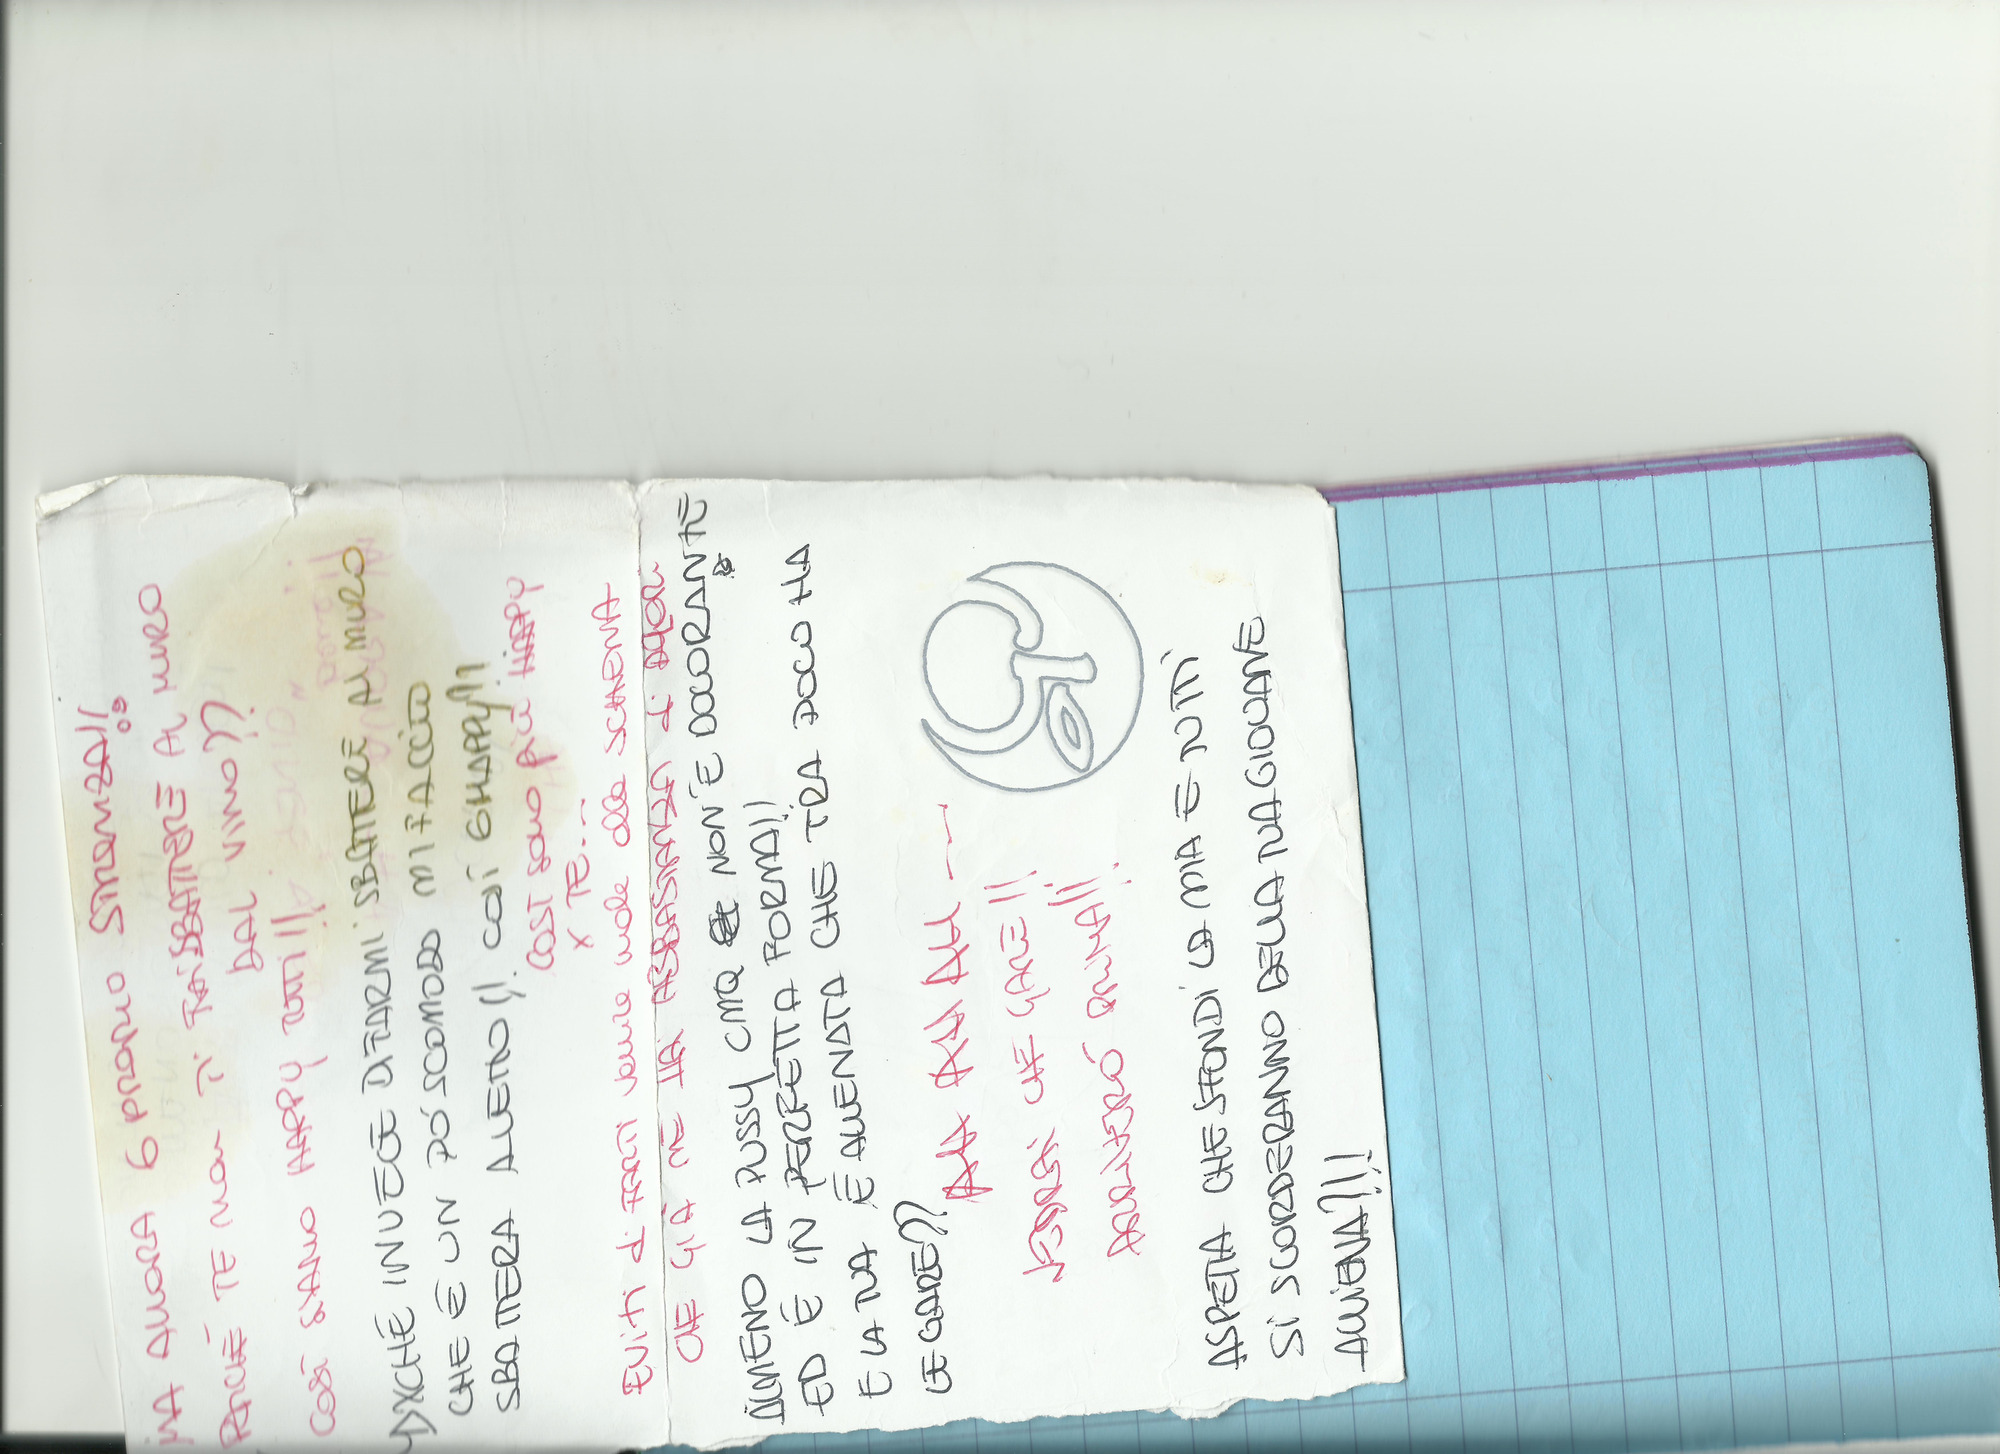 MA ALLORA 6 PROPRIO STRONZA!!
PERCHÉ TE NON TI FAI SBATTERE AL MURO
DAL VINO??
COSÍ SIAMO HAPPY TUTTI!!
XCHÉ INVECE DI FARMI SBATTERE AL MURO
CHE È UN PÓ SCOMODO MI FACCIO
SBATTERA ALLETTO!! COSÍ 6 HAPPY!!
COSÍ SONO PIÙ HAPPY
X TE....
EVITI di FARTI venire male alla SCHIENA
CHE GIÀ NE HAI ABBASTANZA di
ALMENO LA PUSSY CMQ NON È DOLORANTE
ED È IN PERFETTA FORMA!!
E LA TUA È ALLENATA CHE TRA POCO HA
LE GARE??
AHA AHA AH ----
VEDRAI CHE GARE!!
ARRIVERÓ PRIMA!!
ASPETTA CHE SFONDI LA MIA E TUTTI
SI SCORDERANNO DELLA TUA GIOVANE
ALLIEVA!!!